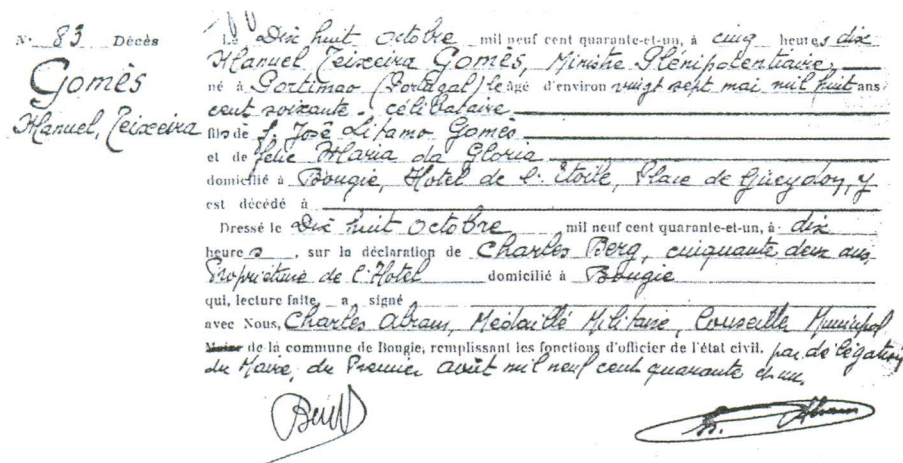 N° 83 Décès
Gomès
Manuel, Teixeira
Le Dix huit octobre mil neuf cent quarante-et-un, à cinq heures dix
Manuel Teixeira Gomès, Ministre Plénipotentiaire,
né à Portimao (Portugal) le âgé d'environ vingt sept mai mil huit ans
cent soixante. célibataire
fils de f. José Libamo Gomès
et de feue Maria da Gloria
domicilié à Bougie, Hotel de l'Etoile, Place de Gueydon, y
est décédé à
Dressé le Dix huit octobre mil neuf cent quarante-et-un, à dix
heures, sur la déclaration de Charles Berg, cinquante deux ans,
Propriétaire de l'Hotel domicilié à Bougie
qui, lecture faite a signé
avec Nous, Charles Abram, Médaillé Militaire, Conseiller Municipal
Maire de la commune de Bougie, remplissant les fonctions d'officier de l'état civil. par délégation
du Maire, du Premier août mil neuf cent quarante et un.